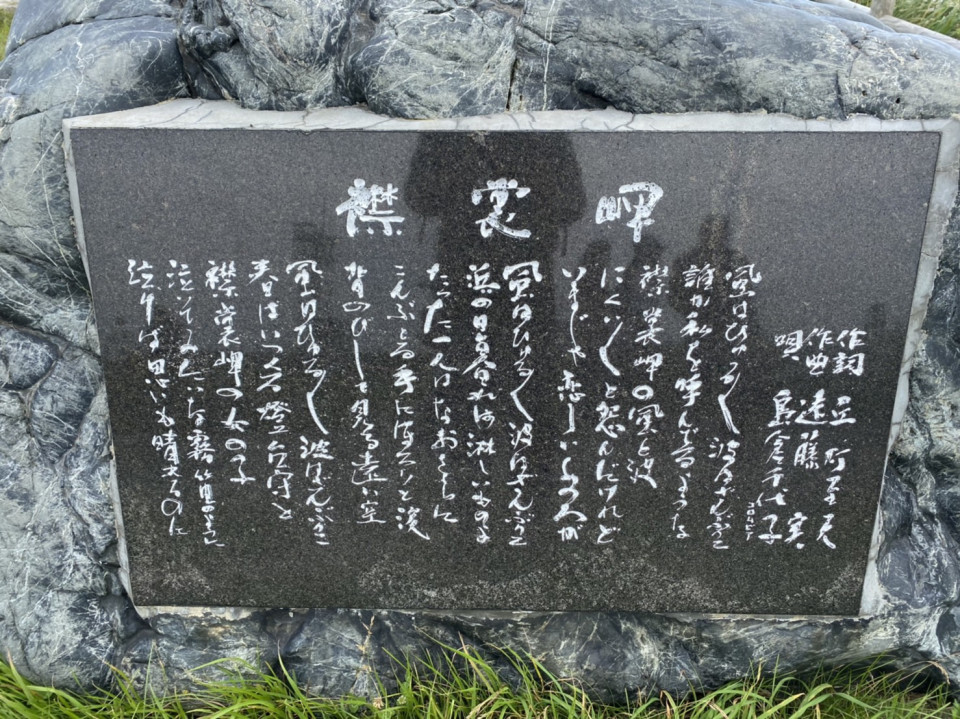 襟裳岬
作詞 丘灯至夫
作曲 遠藤 実
唄 島倉千代子
コロムビア
風はひゅる〱 波はざんぶりこ
誰か私を呼んでるような
襟裳岬の風と波
にくい〱と怨んだけれど
いまじゃ恋しいあの人が
風はひゅる〱 波はざんぶりこ
浜の日暮れは淋しいものよ
たった一人はなおさらに
こんぶとる手にほろ〱と涙
背のびして見る遠い空
風はひゅる〱 波はざんぶりこ
春はいつくる燈台守と
襟裳岬の女の子
泣いてみたいな霧笛のように
泣けば思いも晴れるのに